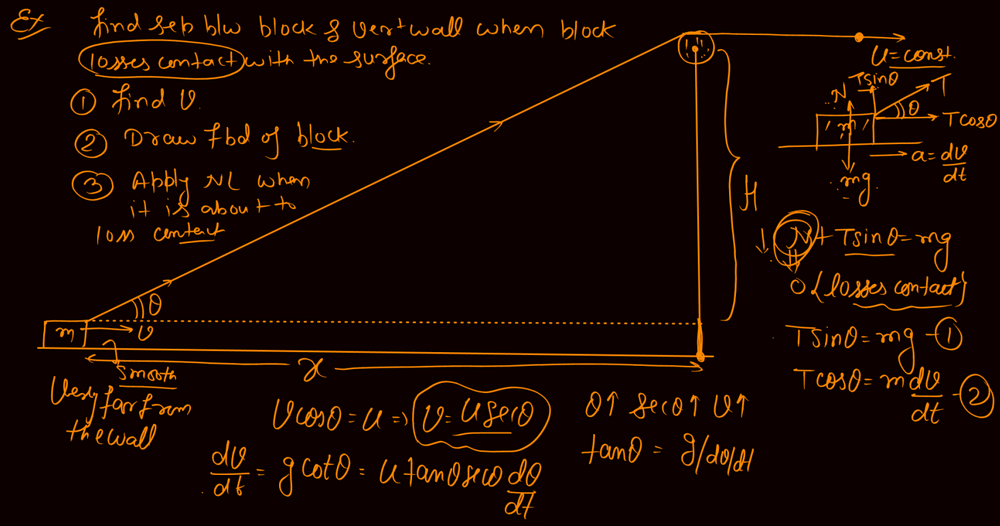 Ex find sep b/w block & vert wall when block
losses contact with the surface.
① find v.
② Draw fbd of block.
③ Apply NL when
it is about to
loss contact
θ
m
v
smooth
Very far from
the wall
x
H
u = const.
N
Tsinθ
T
θ
m
Tcosθ
a = dv/dt
mg
N + Tsinθ = mg
0 {losses contact}
Tsinθ = mg - ①
Tcosθ = m dv/dt - ②
vcosθ = u ⇒ v = usecθ
θ↑ secθ↑ v↑
dv/dt = g cotθ = u tanθ secθ dθ/dt
tanθ = g/dv/dt